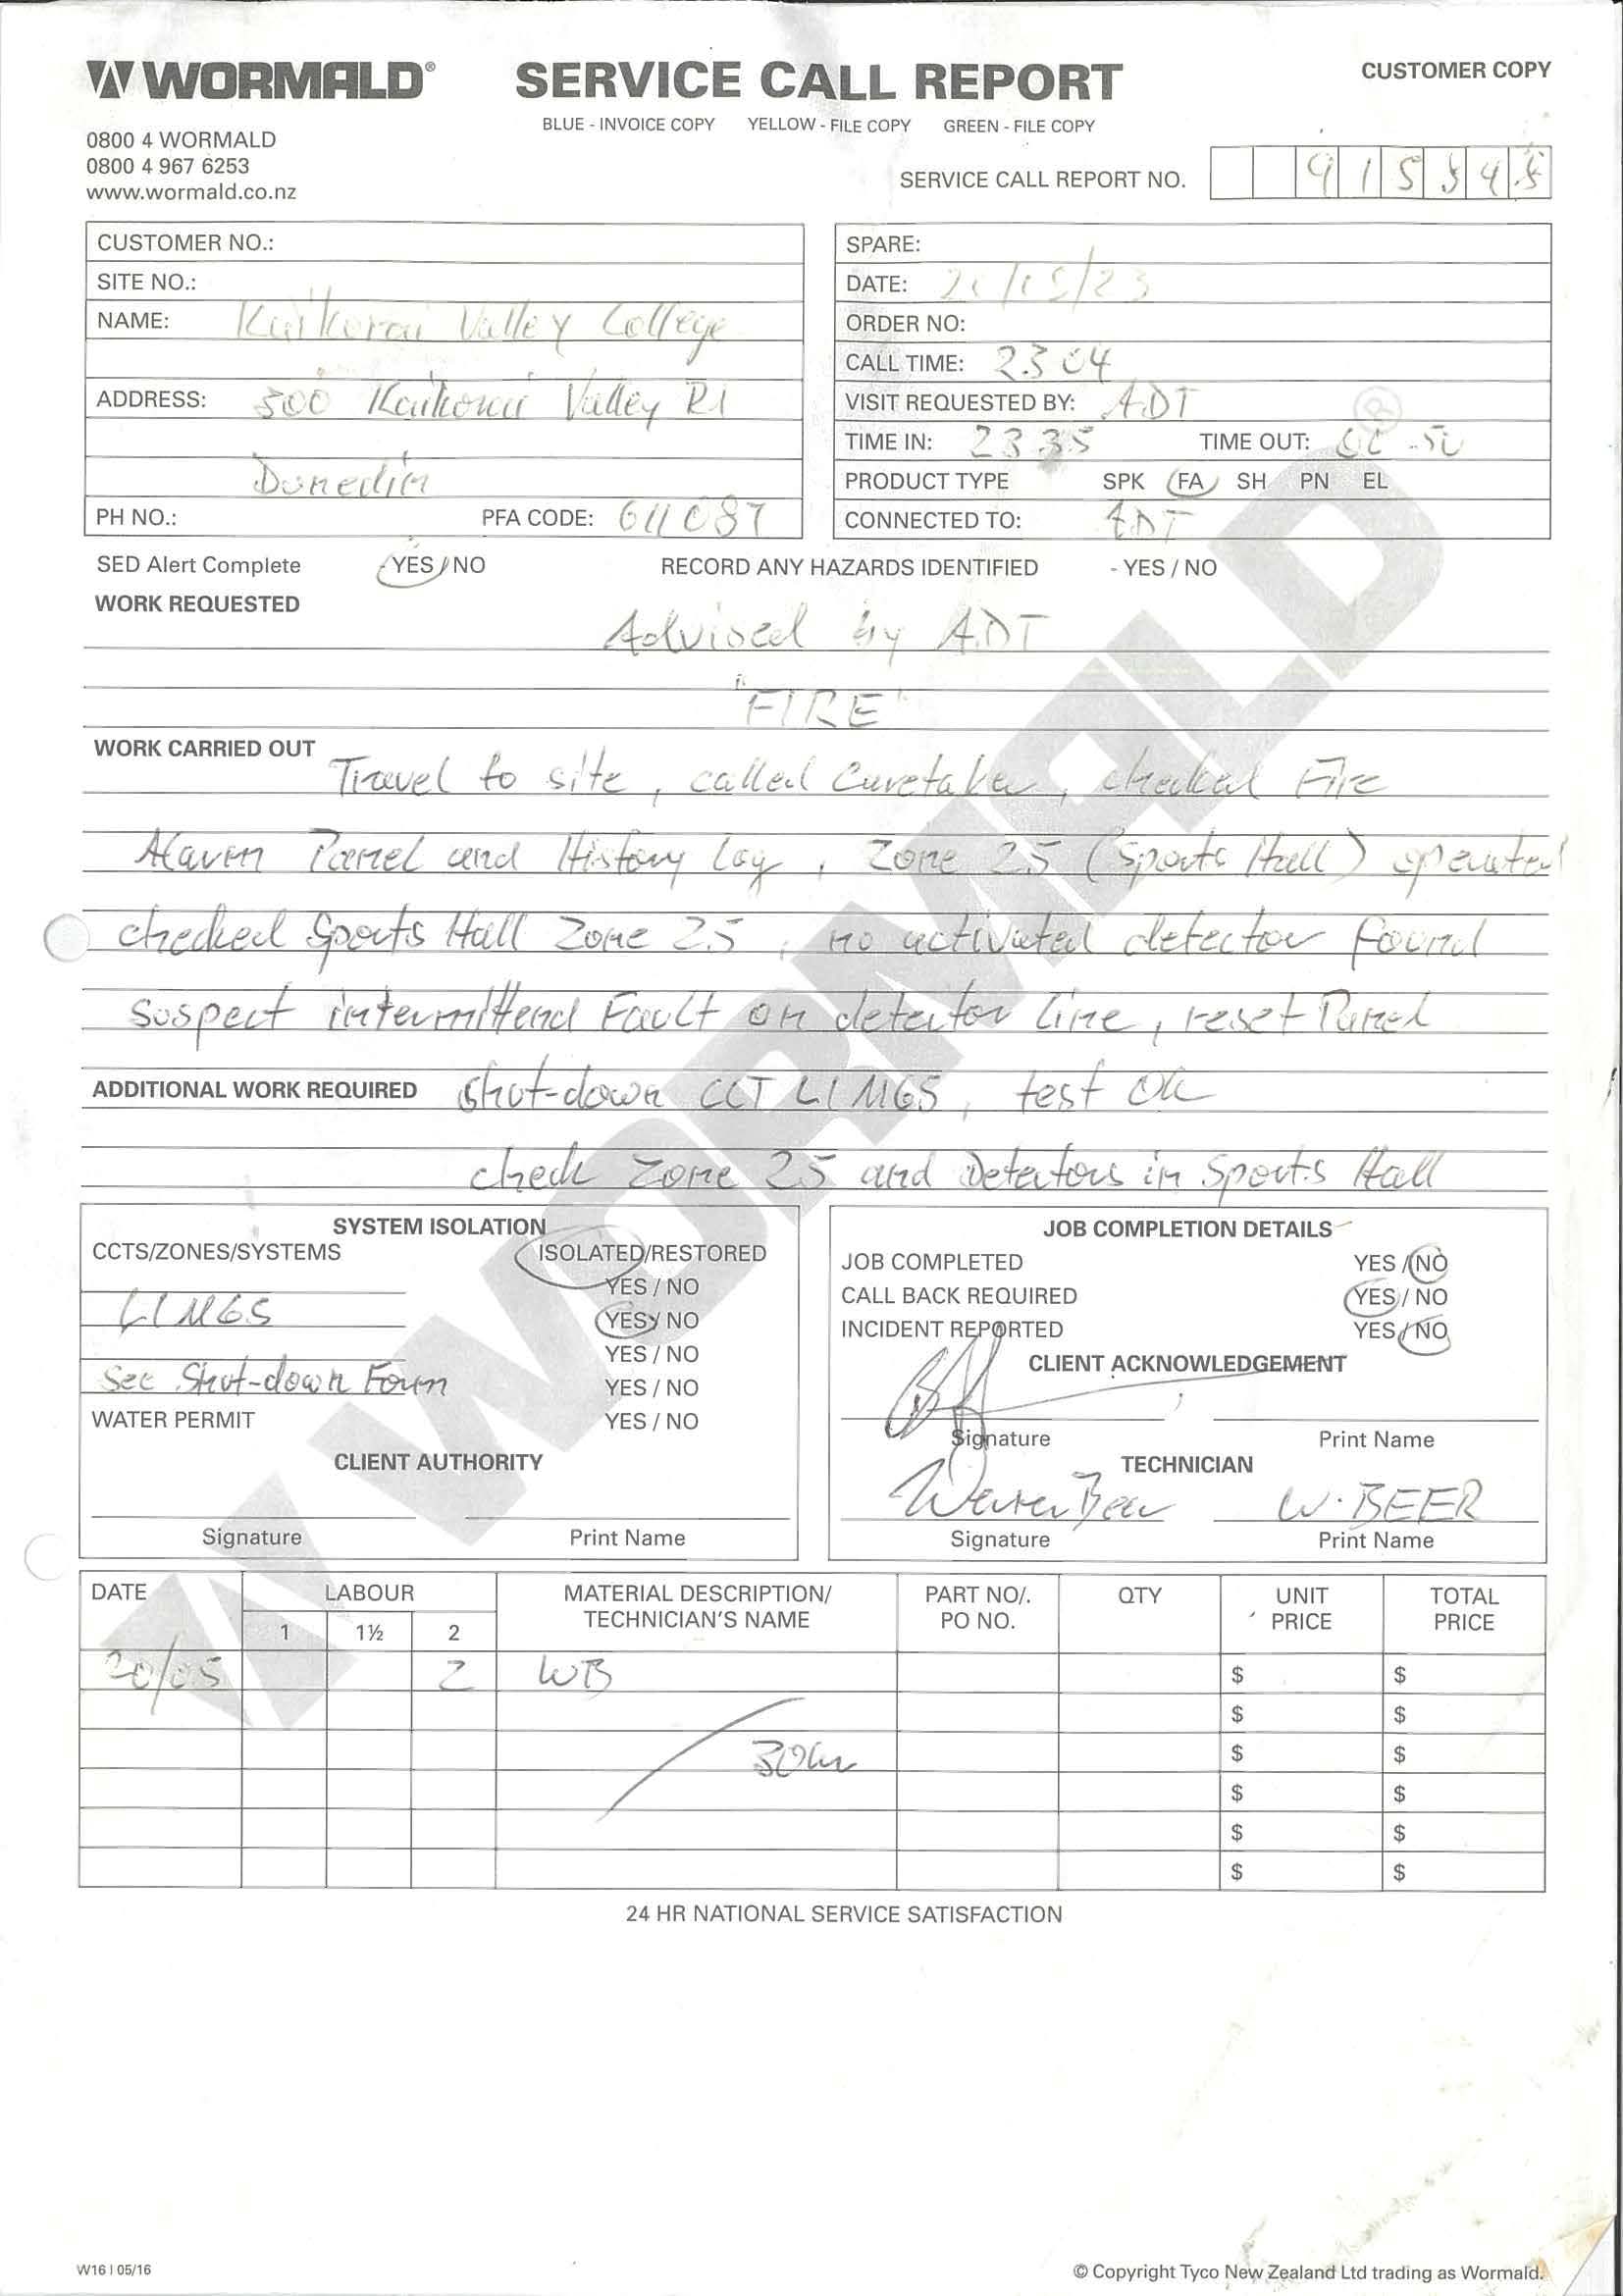 WORMALD®
SERVICE CALL REPORT
CUSTOMER COPY
BLUE - INVOICE COPY YELLOW - FILE COPY GREEN - FILE COPY
0800 4 WORMALD
0800 4 967 6253
www.wormald.co.nz
SERVICE CALL REPORT NO. 915
CUSTOMER NO.:
SITE NO.:
NAME: Kaikorai Valley College
ADDRESS: 500 Kaikorai Valley Rd
Dunedin
PH NO.: PFA CODE: 611087
SPARE:
DATE: /05/23
ORDER NO:
CALL TIME: 2304
VISIT REQUESTED BY: ADT
TIME IN: 2335 TIME OUT:
PRODUCT TYPE SPK FA SH PN EL
CONNECTED TO: ADT
SED Alert Complete YES / NO RECORD ANY HAZARDS IDENTIFIED - YES / NO
WORK REQUESTED
Advised by ADT
"FIRE"
WORK CARRIED OUT
Travel to site, called Caretaker, checked Fire
Alarm Panel and History log, Zone 25 (Sports Hall) operated
checked Sports Hall Zone 25, no activated detector found
suspect intermittend Fault on detector line, reset Panel
ADDITIONAL WORK REQUIRED shut-down CCT L1M65, test OK
check Zone 25 and Detectors in Sports Hall
SYSTEM ISOLATION
CCTS/ZONES/SYSTEMS ISOLATED/RESTORED
YES / NO
L1M65 YES / NO
YES / NO
See Shut-down Form YES / NO
WATER PERMIT YES / NO
CLIENT AUTHORITY
Signature Print Name
JOB COMPLETION DETAILS
JOB COMPLETED YES / NO
CALL BACK REQUIRED YES / NO
INCIDENT REPORTED YES / NO
CLIENT ACKNOWLEDGEMENT
Signature Print Name
TECHNICIAN
W. BEER
Signature Print Name
DATE LABOUR MATERIAL DESCRIPTION/ PART NO/. QTY UNIT TOTAL
1 1½ 2 TECHNICIAN'S NAME PO NO. PRICE PRICE
20/05 2 WB $ $
$ $
$ $
$ $
$ $
$ $
24 HR NATIONAL SERVICE SATISFACTION
W16 | 05/16
© Copyright Tyco New Zealand Ltd trading as Wormald.
WORMALD